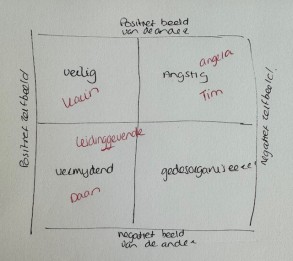 Positief beeld
van de ander
Positief zelfbeeld
veilig
Karin
angela
Angstig
Tim
Negatief zelfbeeld!
leidinggevende
vermijdend
Daan
gedesorganiseerd
negatief beeld
van de ander